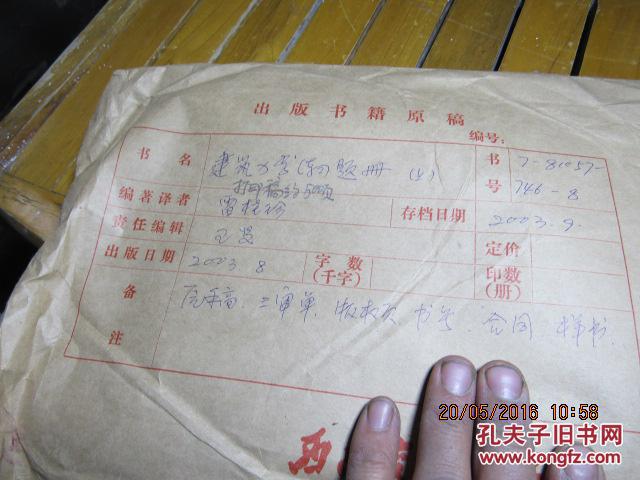 出版书籍原稿
编号:
书名 建筑力学练习题册(上) 书号 7-81057-746-8
打印稿约500页
编著译者 存档日期 2003.9.
责任编辑 定价
出版日期 2003.8 字数(千字) 印数(册)
备注 原手稿. 三审单. 版权页 书号. 合同 样书.
西
20/05/2016 10:58
孔夫子旧书网
www.kongfz.com